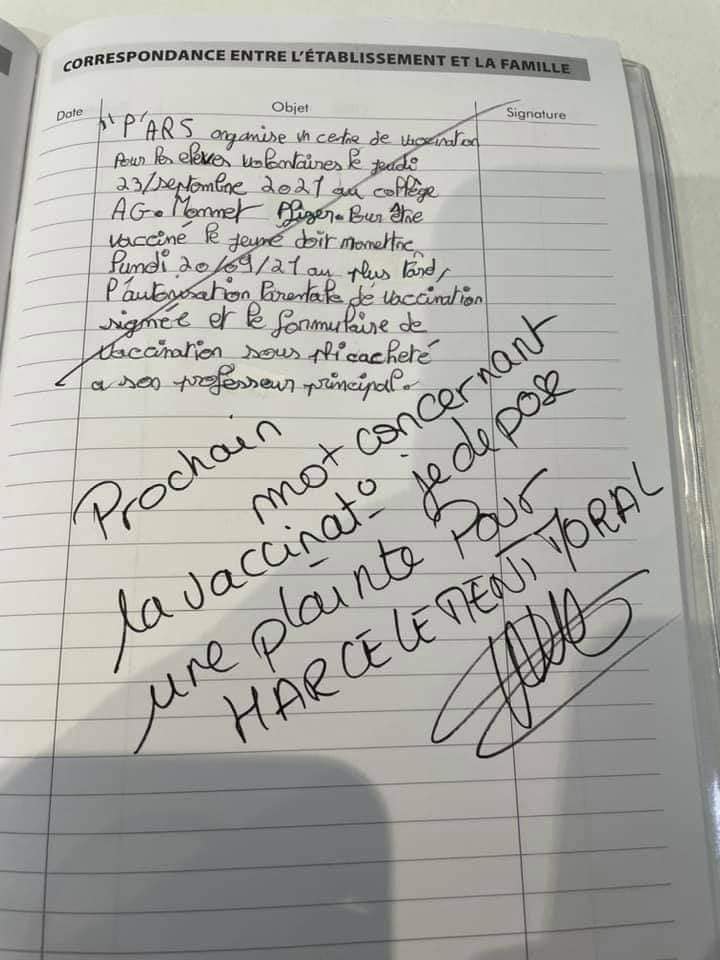 CORRESPONDANCE ENTRE L'ÉTABLISSEMENT ET LA FAMILLE
Date Objet Signature
L'ARS organise un centre de vaccination
Pour les élèves volontaires le jeudi
23/septembre 2021 au collège
AG. Monnet Pfizer. Pour être
vacciné le jeune doit remettre
lundi 20/09/21 au plus tard,
l'autorisation Parentale de vaccination
signée et le formulaire de
vaccination sous pli cacheté
a son professeur principal.
Prochain mot concernant
la vaccinatº je depose
une plainte pour
HARCELEMENT MORAL